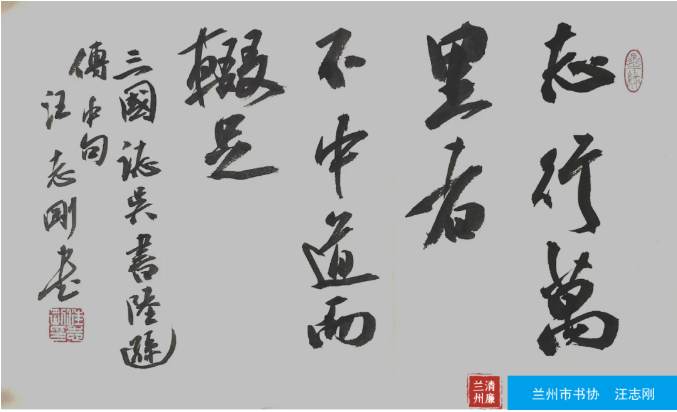 志行萬
里者
不中道而
輟足
三國誌吳書陸遜
傳中句
汪志剛書
清廉
兰州
兰州市书协 汪志刚